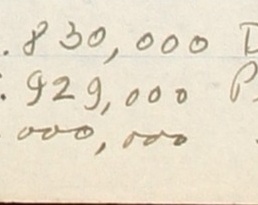 . 830,000 D
: 929,000 P
000,000